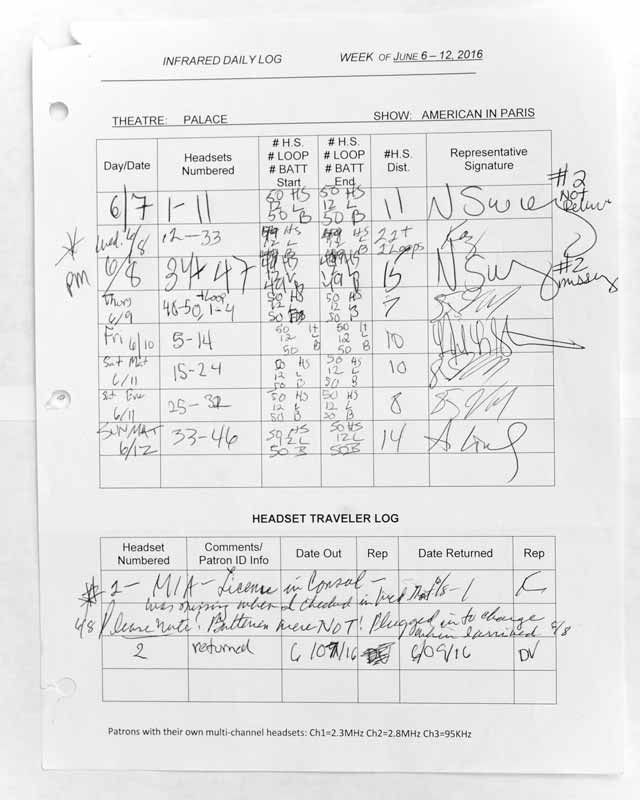 INFRARED DAILY LOG WEEK OF JUNE 6 – 12, 2016
THEATRE: PALACE SHOW: AMERICAN IN PARIS
Day/Date Headsets Numbered # H.S. # LOOP # BATT Start # H.S. # LOOP # BATT End #H.S. Dist. Representative Signature
#2 NOT
6/7 1-11 50 HS 12 L 50 B 50 HS 12 L 50 B 11
Wed. 6/8 12-33 49 HS 12 L 49 HS 12 L 22+ 2 Loops
PM 6/8 34+47 15 #2
Thurs 6/9 48-50, 1-4 + Loop 50 HS 12 L 50 B 50 HS 12 L 50 B 7
Fri 6/10 5-14 50 H 12 L 50 B 50 H 12 L 50 B 10
Sat Mat 6/11 15-24 50 HS 12 L 50 B 50 HS 12 L 50 B 10
Sat Eve 6/11 25-32 50 HS 12 L 50 B 50 HS 12 L 50 B 8
SUN MAT 6/12 33-46 50 HS 12 L 50 B 50 HS 12 L 50 B 14
HEADSET TRAVELER LOG
Headset Numbered Comments/ Patron ID Info Date Out Rep Date Returned Rep
# 2 - MIA - License in Consol -
was missing when I checked in
6/8 Please Note! Batteries were NOT! Plugged in to charge
when I arrived 6/8
2 returned 6/07/16 6/09/16 DV
Patrons with their own multi-channel headsets: Ch1=2.3MHz Ch2=2.8MHz Ch3=95KHz